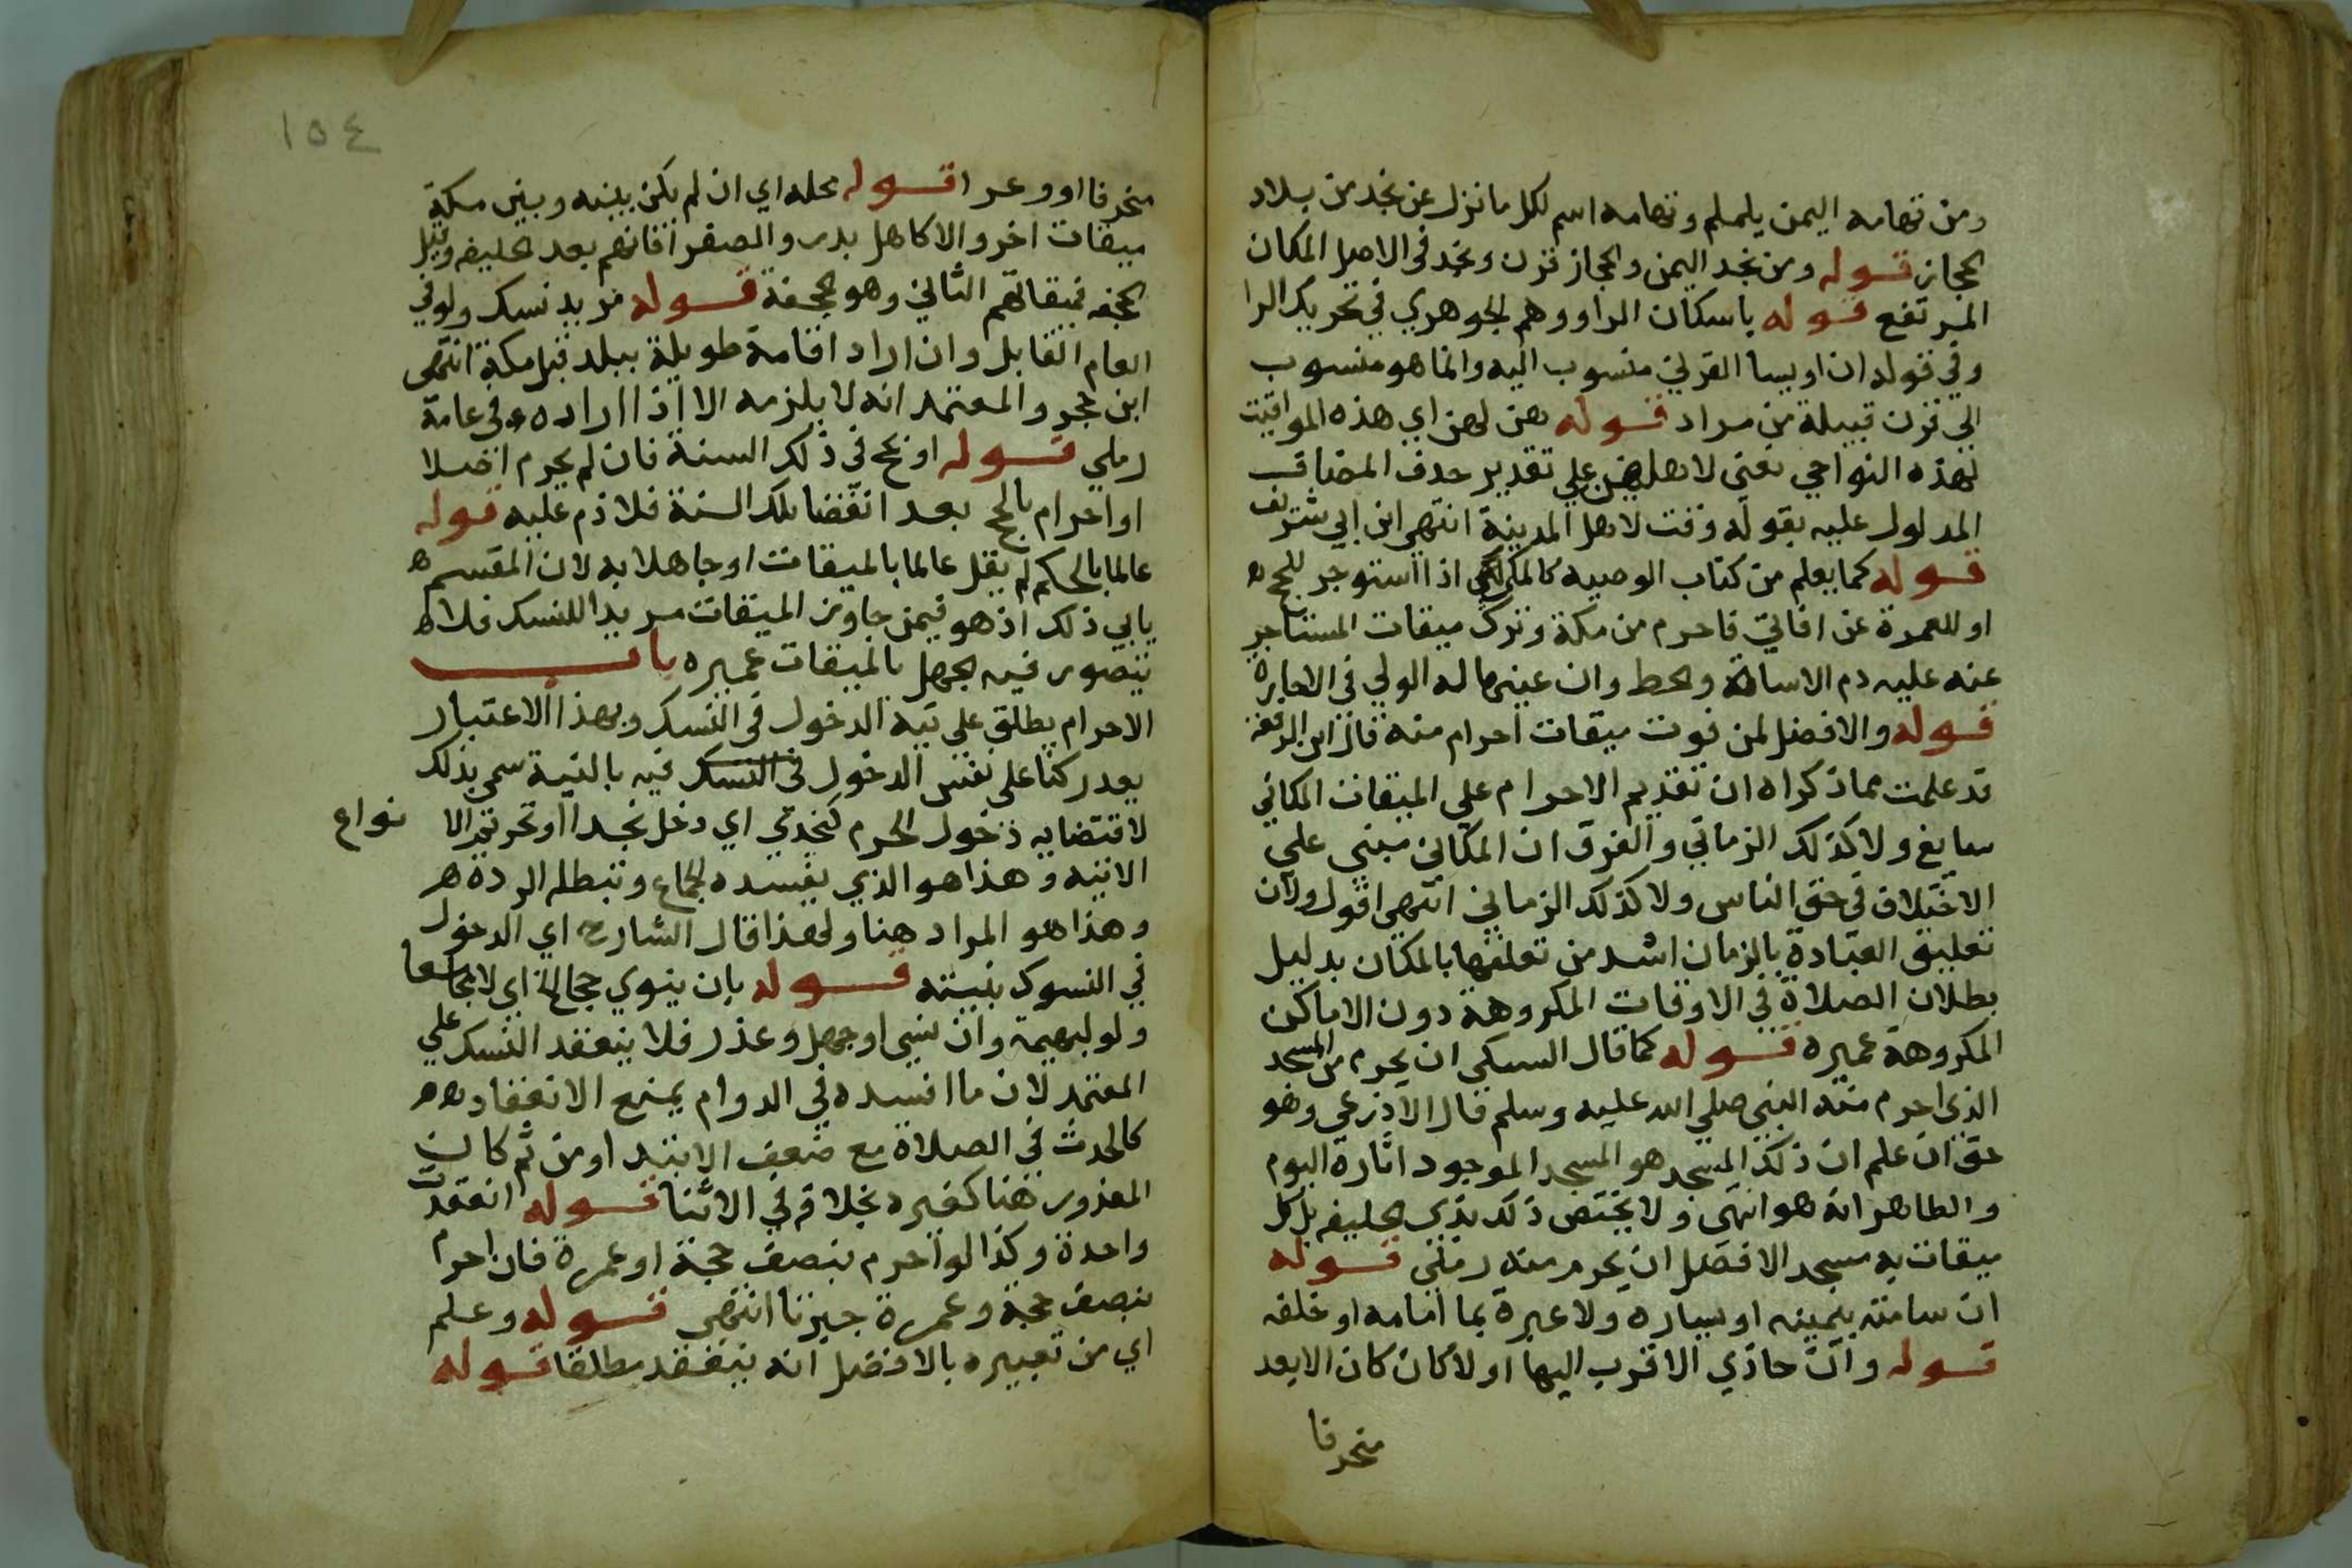 ومن تهامه اليمن يلملم وتهامه اسم لكل ما نزل عن نجد من بلاد
الحجاز قوله ومن نجد اليمن والحجاز قرن ونجد في الاصل المكان
المرتفع قوله باسكان الراء ووهم الجوهري في تحريك الرا
وفي قوله ان اويسا القرني منسوب اليه وانما هو منسوب
الى قرن قبيلة من مراد قوله هن لهن اي هذه المواقيت
لهذه النواحي نعني لاهلهن علي تقدير حدف المضاف
المدلول عليه بقوله وقت لاهل المدينة انتهى ابن ابي شريف
قوله كما يعلم من كتاب الوصيه كالمكي اذا استوجر للحج ه
او للعمرة عن افاقي فاحرم من مكة وترك ميقات المستاجر
عنه عليه دم الاساة والحط وان عينها له الولي في الاجارة
قوله والافضل لمن فوت ميقات احرام منه قال ابن الرفعه
قد علمت مما ذكراه ان تقديم الاحرام علي الميقات المكاني
سايغ ولا كذلك الزماني والفرق ان المكاني مبني علي
الاختلاف في حق الناس ولا كذلك الزماني انتهى اقول ولان
تعليق العبادة بالزمان اشد من تعلقها بالمكان بدليل
بطلان الصلاة في الاوقات المكروهة دون الاماكن
المكروهة عميره قوله كما قال السبكي ان يحرم من المسجد
الذي احرم منه النبي صلي الله عليه وسلم قال الاذرعي وهو
حق ان علم ان ذلك المسجد هو المسجد الموجود اثاره اليوم
والظاهر انه هو انتهى ولا يختص ذلك بذي الحليفه بل كل
ميقات به مسجد الافضل ان يحرم منه رملي قوله
ان سامته بيمينه او يساره ولا عبرة بما امامه او خلفه
قوله وان حاذي الاقرب اليها او لا كان كان الابعد
منحرفا
١٥٤
منحرفا او وعرا قوله محله اي ان لم يكن بينه وبين مكة
ميقات اخر والا كاهل بدر والصفرا فانهم بعد الحليفه وقبل
الجحفه فميقاتهم الثاني وهو الجحفة قوله مريد نسك ولو في
العام القابل وان اراد اقامة طويلة ببلد قبل مكة انتهى
ابن حجر والمعتمد انه لا يلزمه الا اذا اراده في عامة
رملي قوله او حج في ذلك السنة فان لم يحرم اصلا
او احرام بالحج بعد انقضا تلك السنة فلا دم عليه قوله
عالما بالحكم لم يقل عالما بالميقات او جاهلا به لان المقسم ه
يابي ذلك اذ هو فيمن جاوز الميقات مريدا للنسك فلا
يتصور فيه الجهل بالميقات عميره باب
الاحرام يطلق علي نية الدخول في النسك وبهذا الاعتبار
يعد ركنا علي نفس الدخول في النسك فيه بالنية سمي بذلك
لاقتضايه دخول الحرم كنجدي اي دخل نجدا او تحريم الا نواع
الاتيه وهذا هو الذي يفسده الجماع وتبطله الردة هر
وهذا هو المراد هنا ولهذا قال الشارح اي الدخول
في النسوك بنيته قوله بان ينوي حجا الخ اي لا مجامعا
ولو لبهيمة وان نسي او جهل وعذر فلا ينعقد النسك علي
المعتمد لان ما افسده في الدوام يمنع الانعقاد هه
كالحدث في الصلاة مع ضعف الابتدا ومن ثم كان
المعذور هنا كغيره بخلافه في الاثنا قوله انعقدت
واحدة وكذا لو احرم بنصف حجة او عمرة فان احرم
بنصف حجة وعمرة جبرنا انتهى قوله وعلم
اي من تعبيره بالافضل انه ينعقد مطلقا قوله